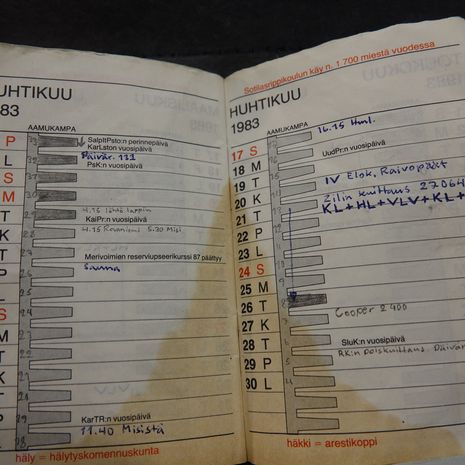 HUHTIKUU
83
AAMUKAMPA
P
SalpItPsto:n perinnepäivä
KarLston vuosipäivä
L Päivär. 111
S PsK:n vuosipäivä
M
T 4.15 lähtö lappiin
KaiPr:n vuosipäivä
K 4.15 Rovaniemi 5.30 Misi.
T
Merivoimien reserviupseerikurssi 87 päättyy
P Sauna
L
S
M
T
K
T
P
KarTR:n vuosipäivä
L 11.40 Misistä
häly = hälytyskomennuskunta
Sotilasrippikoulun käy n. 1 700 miestä vuodessa
HUHTIKUU
1983
AAMUKAMPA
16.15 Hml.
17 S
UudPr:n vuosipäivä
18 M
19 T IV Elok. Raivopäät
20 K Zilin kuittaus 27064
21 T KL+HL+VLV+KL+
22 P
23 L
24 S
25 M
26 T
Cooper 2400
27 K
SluK:n vuosipäivä
28 T RK:n poiskuittaus. Päivär
29 P
30 L
häkki = arestikoppi